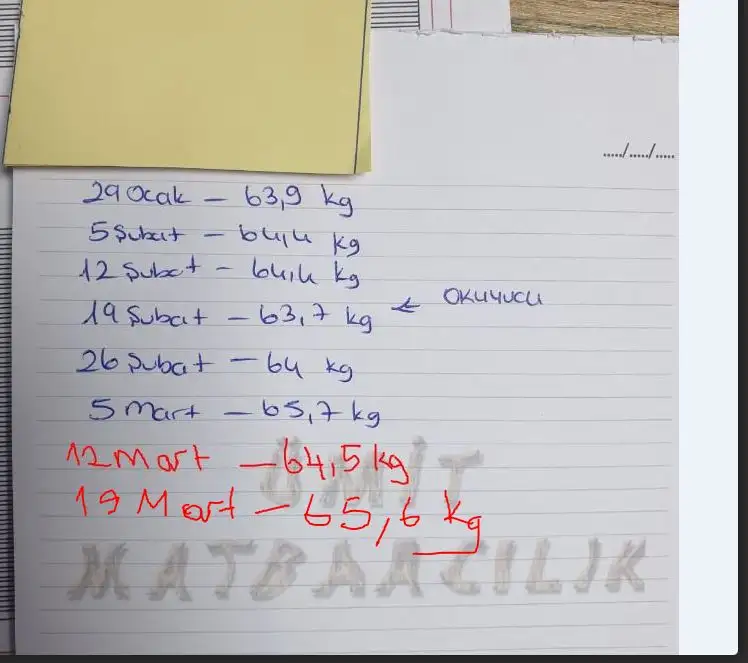 ...../...../.....
29 Ocak – 63,9 kg
5 Şubat – 64,4 kg
12 Şubat – 64,4 kg
19 Şubat – 63,7 kg ← OKUYUCU
26 Şubat – 64 kg
5 Mart – 65,7 kg
12 Mart – 64,5 kg
19 Mart – 65,6 kg
ÜMİT
MATBAACILIK